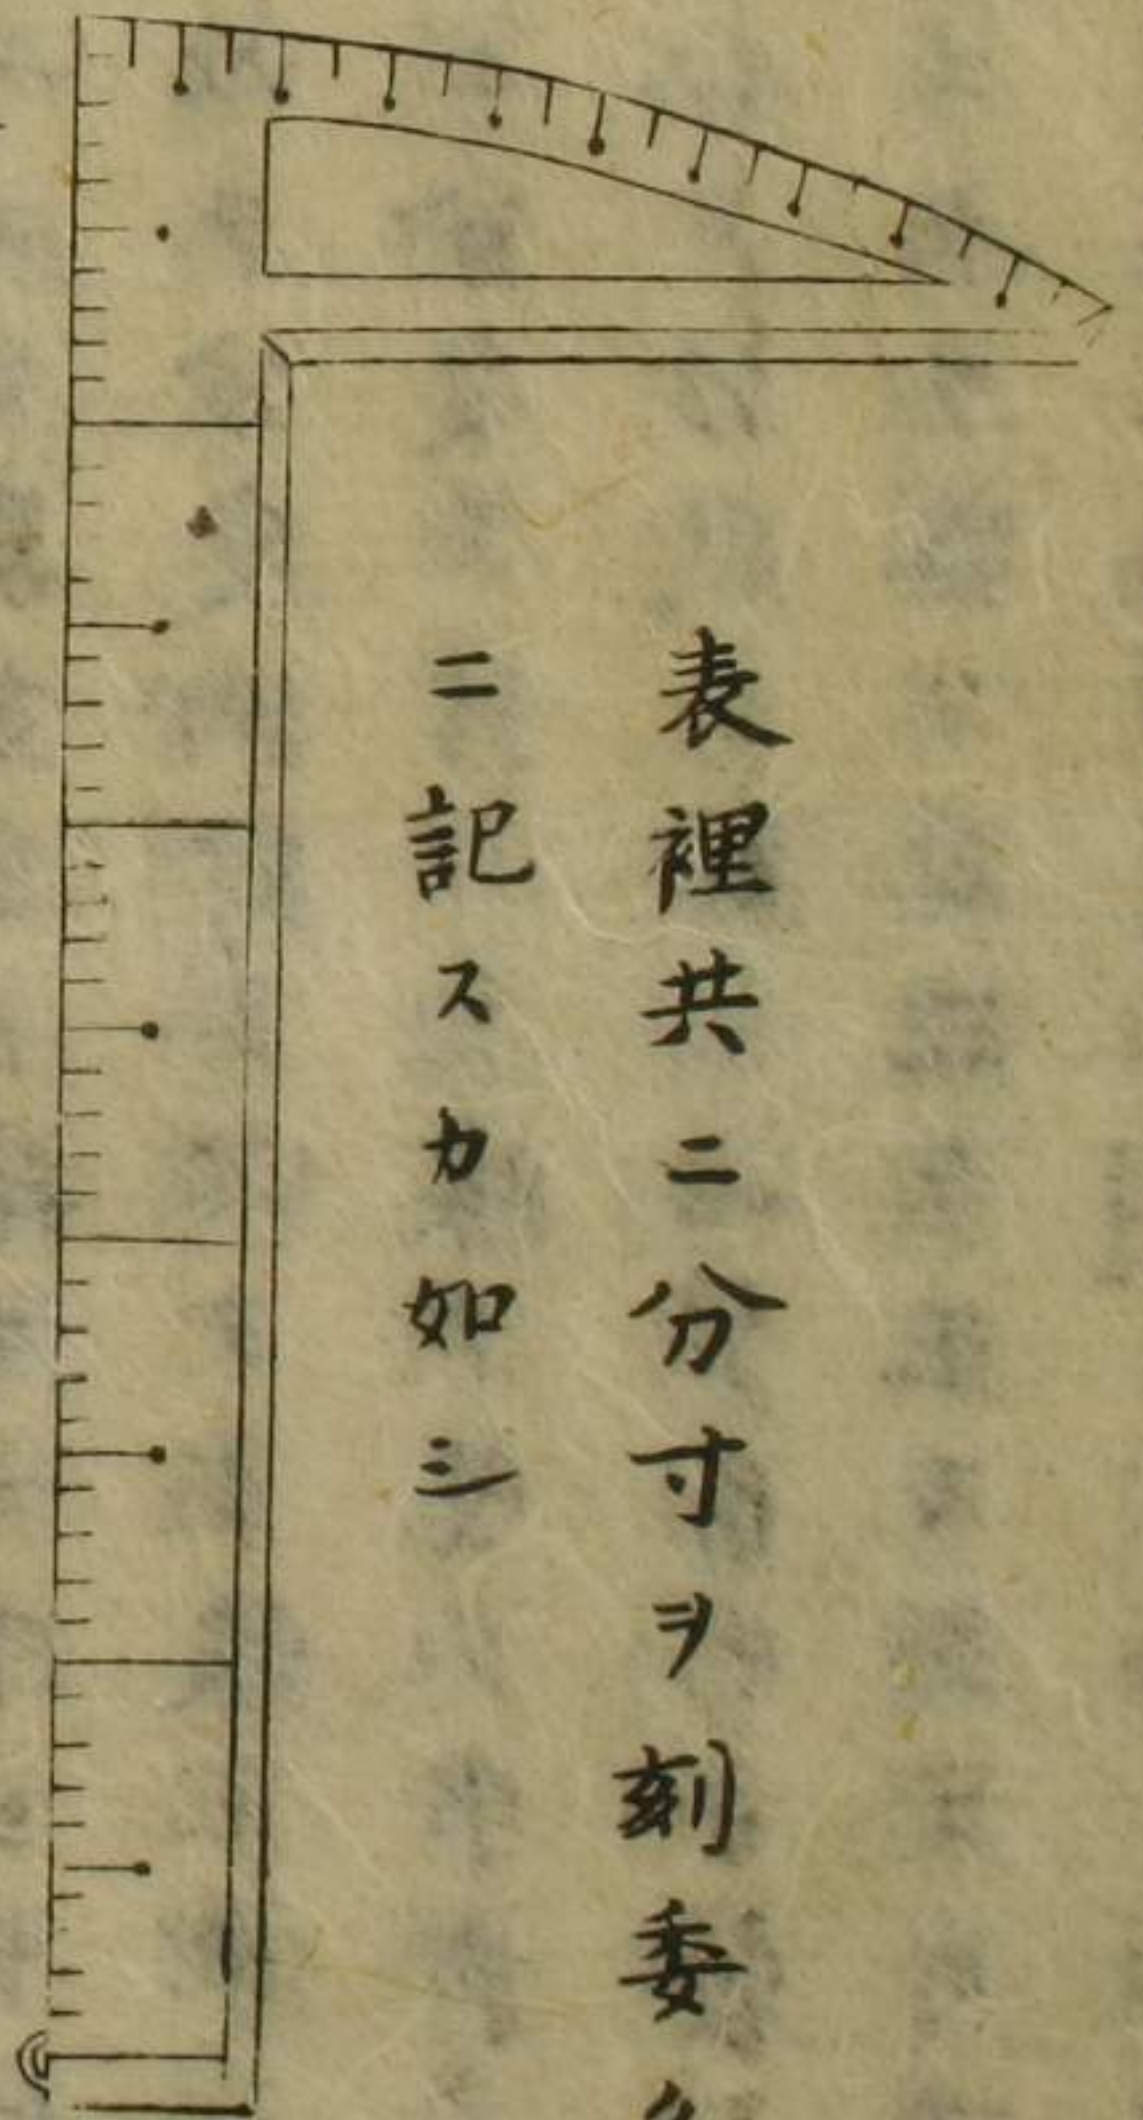 表裡共ニ分寸ヲ刻委
ニ記スカ如シ